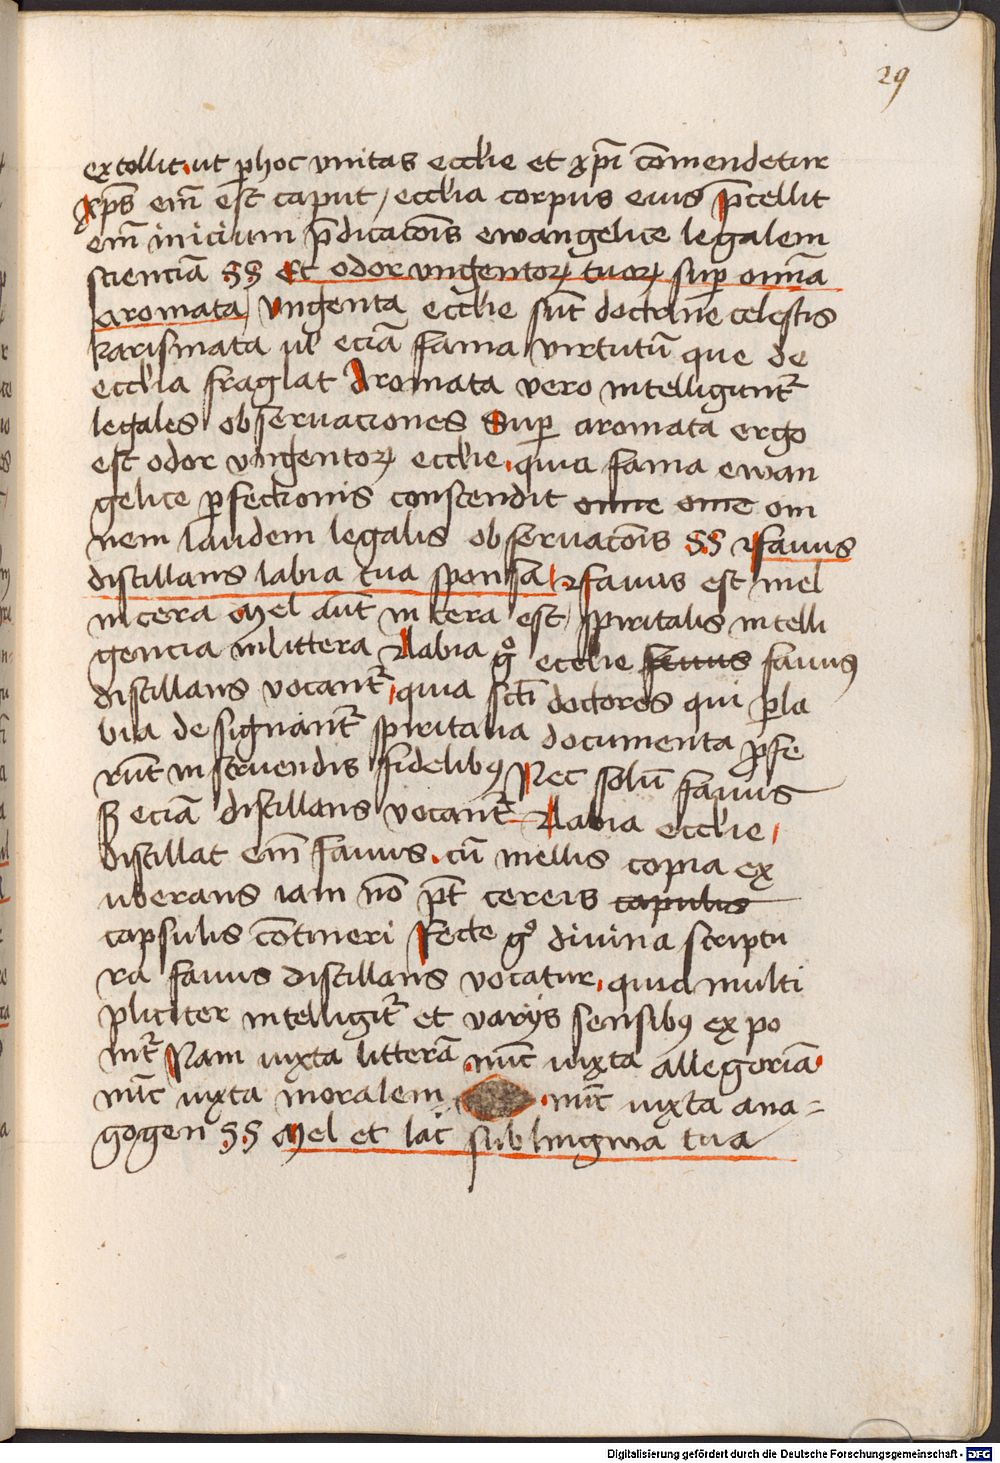 29
extollit ut p̲hoc vnitas eccl̅ie et xp̅i com̅endetur
xp̅s em̅ est caput / eccl̅ia corpus eius p̅cellit
em̅ inicium p̅dicaco̅is ewangelice legalem
sciencia̅ §§ Et odor vngentoꝝ tuoꝝ sup̲ omn̅a
aromata / vngenta eccl̅ie su̅t doctrine celestis
karismata ul̅ ecia̅ fama virtutu̅ que de
eccl̅ia fraglat Aromata vero intelligunt᷑
legales obseruaciones Sup̲ aromata ergo
est odor vngentoꝝ eccl̅ie quia fama ewan
gelice p̲fectionis conscendit om̅e om̅e om
nem laudem legalis obseruaco̅is §§ ffauus
distillans labia tua sponsa / ffauus est mel
in cera Mel aut̅ in cera est / spiritalis intelli
gencia in littera Labia gͦ eccl̅ie fauus fauus
distillans vocant᷑ quia sct̅i doctores qui p̲ la
bia designant᷑ spiritalia documenta p̲fe
ru̅t instruendis fidelibꝰ Nec solu̅ fauus
ß ecia̅ distillans vocant᷑ Labia eccl̅ie
distillat em̅ fauus cu̅ mellis copia ex
uberans iam no̅ p̅t cereis capulis
capsulis contineri Recte gͦ diuina scriptu
ra fauus distillans vocatur quia multi
pliciter intelligit᷑ et varijs sensibꝰ expo
nit᷑ Nam iuxta littera̅ nu̅c iuxta allegoria̅
nu̅c iuxta moralem nu̅c iuxta ana=
gogen §§ Mel et lac sub lingwa tua
Digitalisierung gefördert durch die Deutsche Forschungsgemeinschaft - DFG